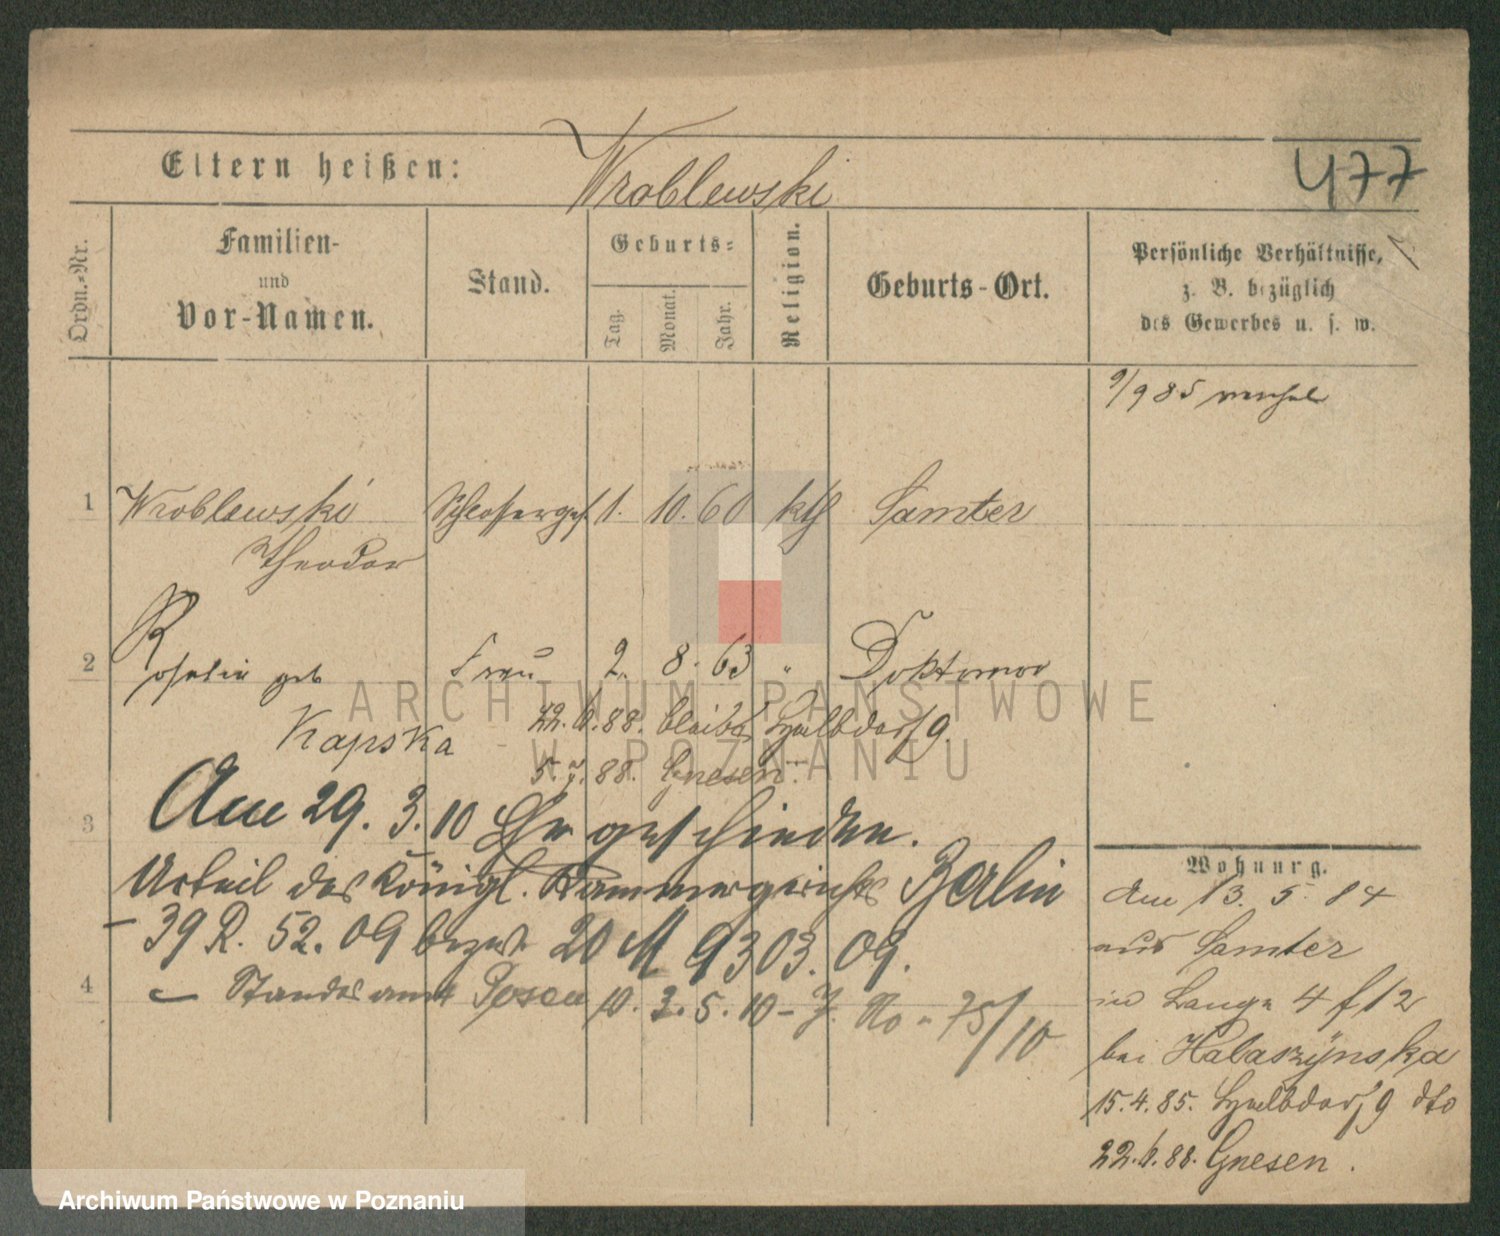 Eltern heißen: Wroblewski
477
Ordn.-Nr.
Familien-
und
Vor-Namen.
Stand.
Geburts-
Tag.
Monat.
Jahr.
Religion.
Geburts-Ort.
Persönliche Verhältnisse,
z. B. bezüglich
des Gewerbes u. s. w.
9/9 85
1 Wroblewski Schlosserges. 1. 10. 60 kth Samter
Theodor
2 Rosalie geb Frau 2. 8. 63 " Doktorowo
Kapska
22.6.88. bleibt Halbdorf 9.
5.7.88. Gnesen.
3 Am 29. 3. 10 Ehe geschieden.
Urteil des Königl. Kammergerichts Berlin
- 39 R. 52. 09 bezw 20 U 9303. 09.
4 - Standesamt Posen 10. 3. 5. 10 - J. No. 75/10
Wohnung.
Am 13. 5. 84
aus Samter
in Lange 4 f 12
bei Halaszynska
15.4.85. Halbdorf 9 dto
22.6.88. Gnesen.
ARCHIWUM PAŃSTWOWE
W POZNANIU
Archiwum Państwowe w Poznaniu